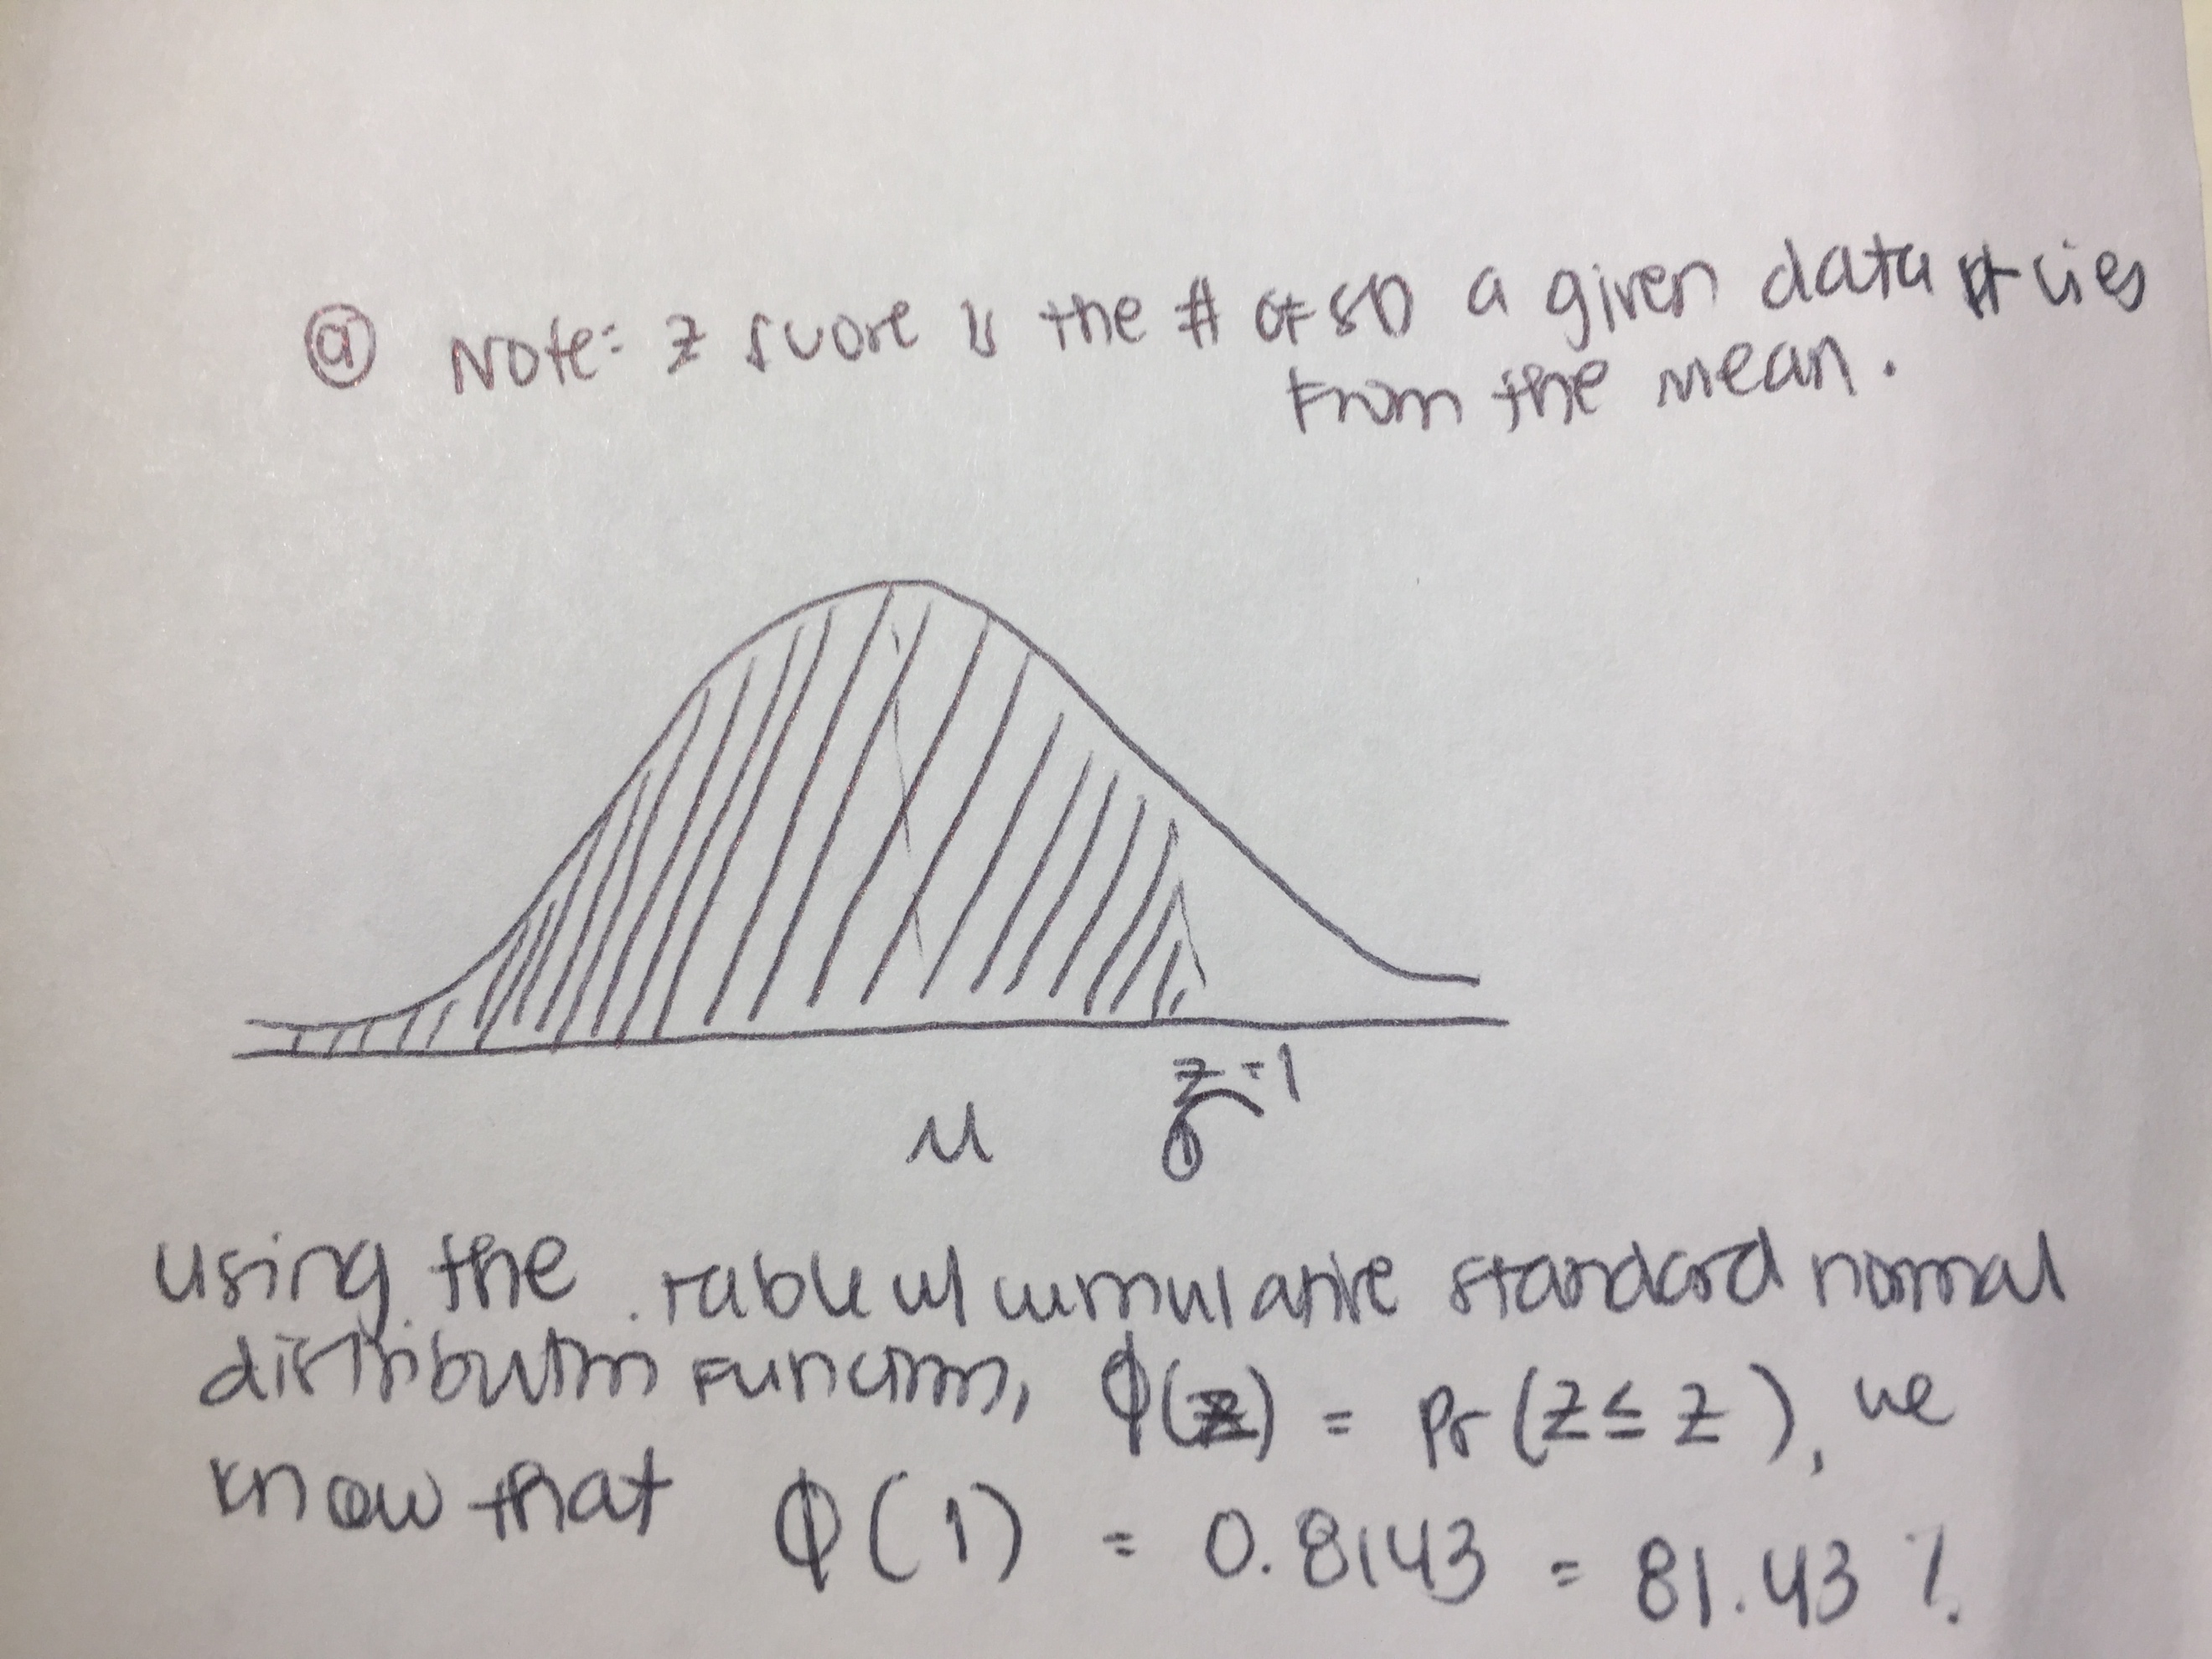 ⓐ Note: z score is the # of SD a given data pt lies
from the mean.
z=1
μ σ
using the table w/ cumulative standard normal
distribution function, Φ(z) = Pr(Z ≤ z), we
know that Φ(1) = 0.8143 = 81.43 %